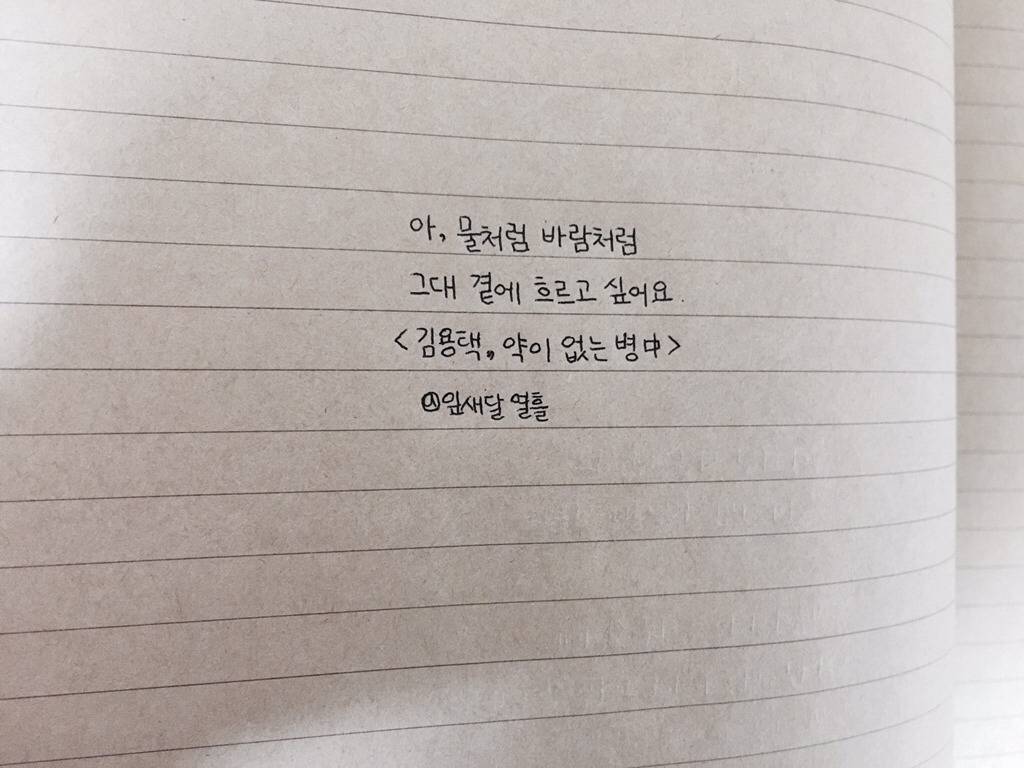 아, 물처럼 바람처럼
그대 곁에 흐르고 싶어요.
<김용택, 약이 없는 병中>
잎새달 열흘